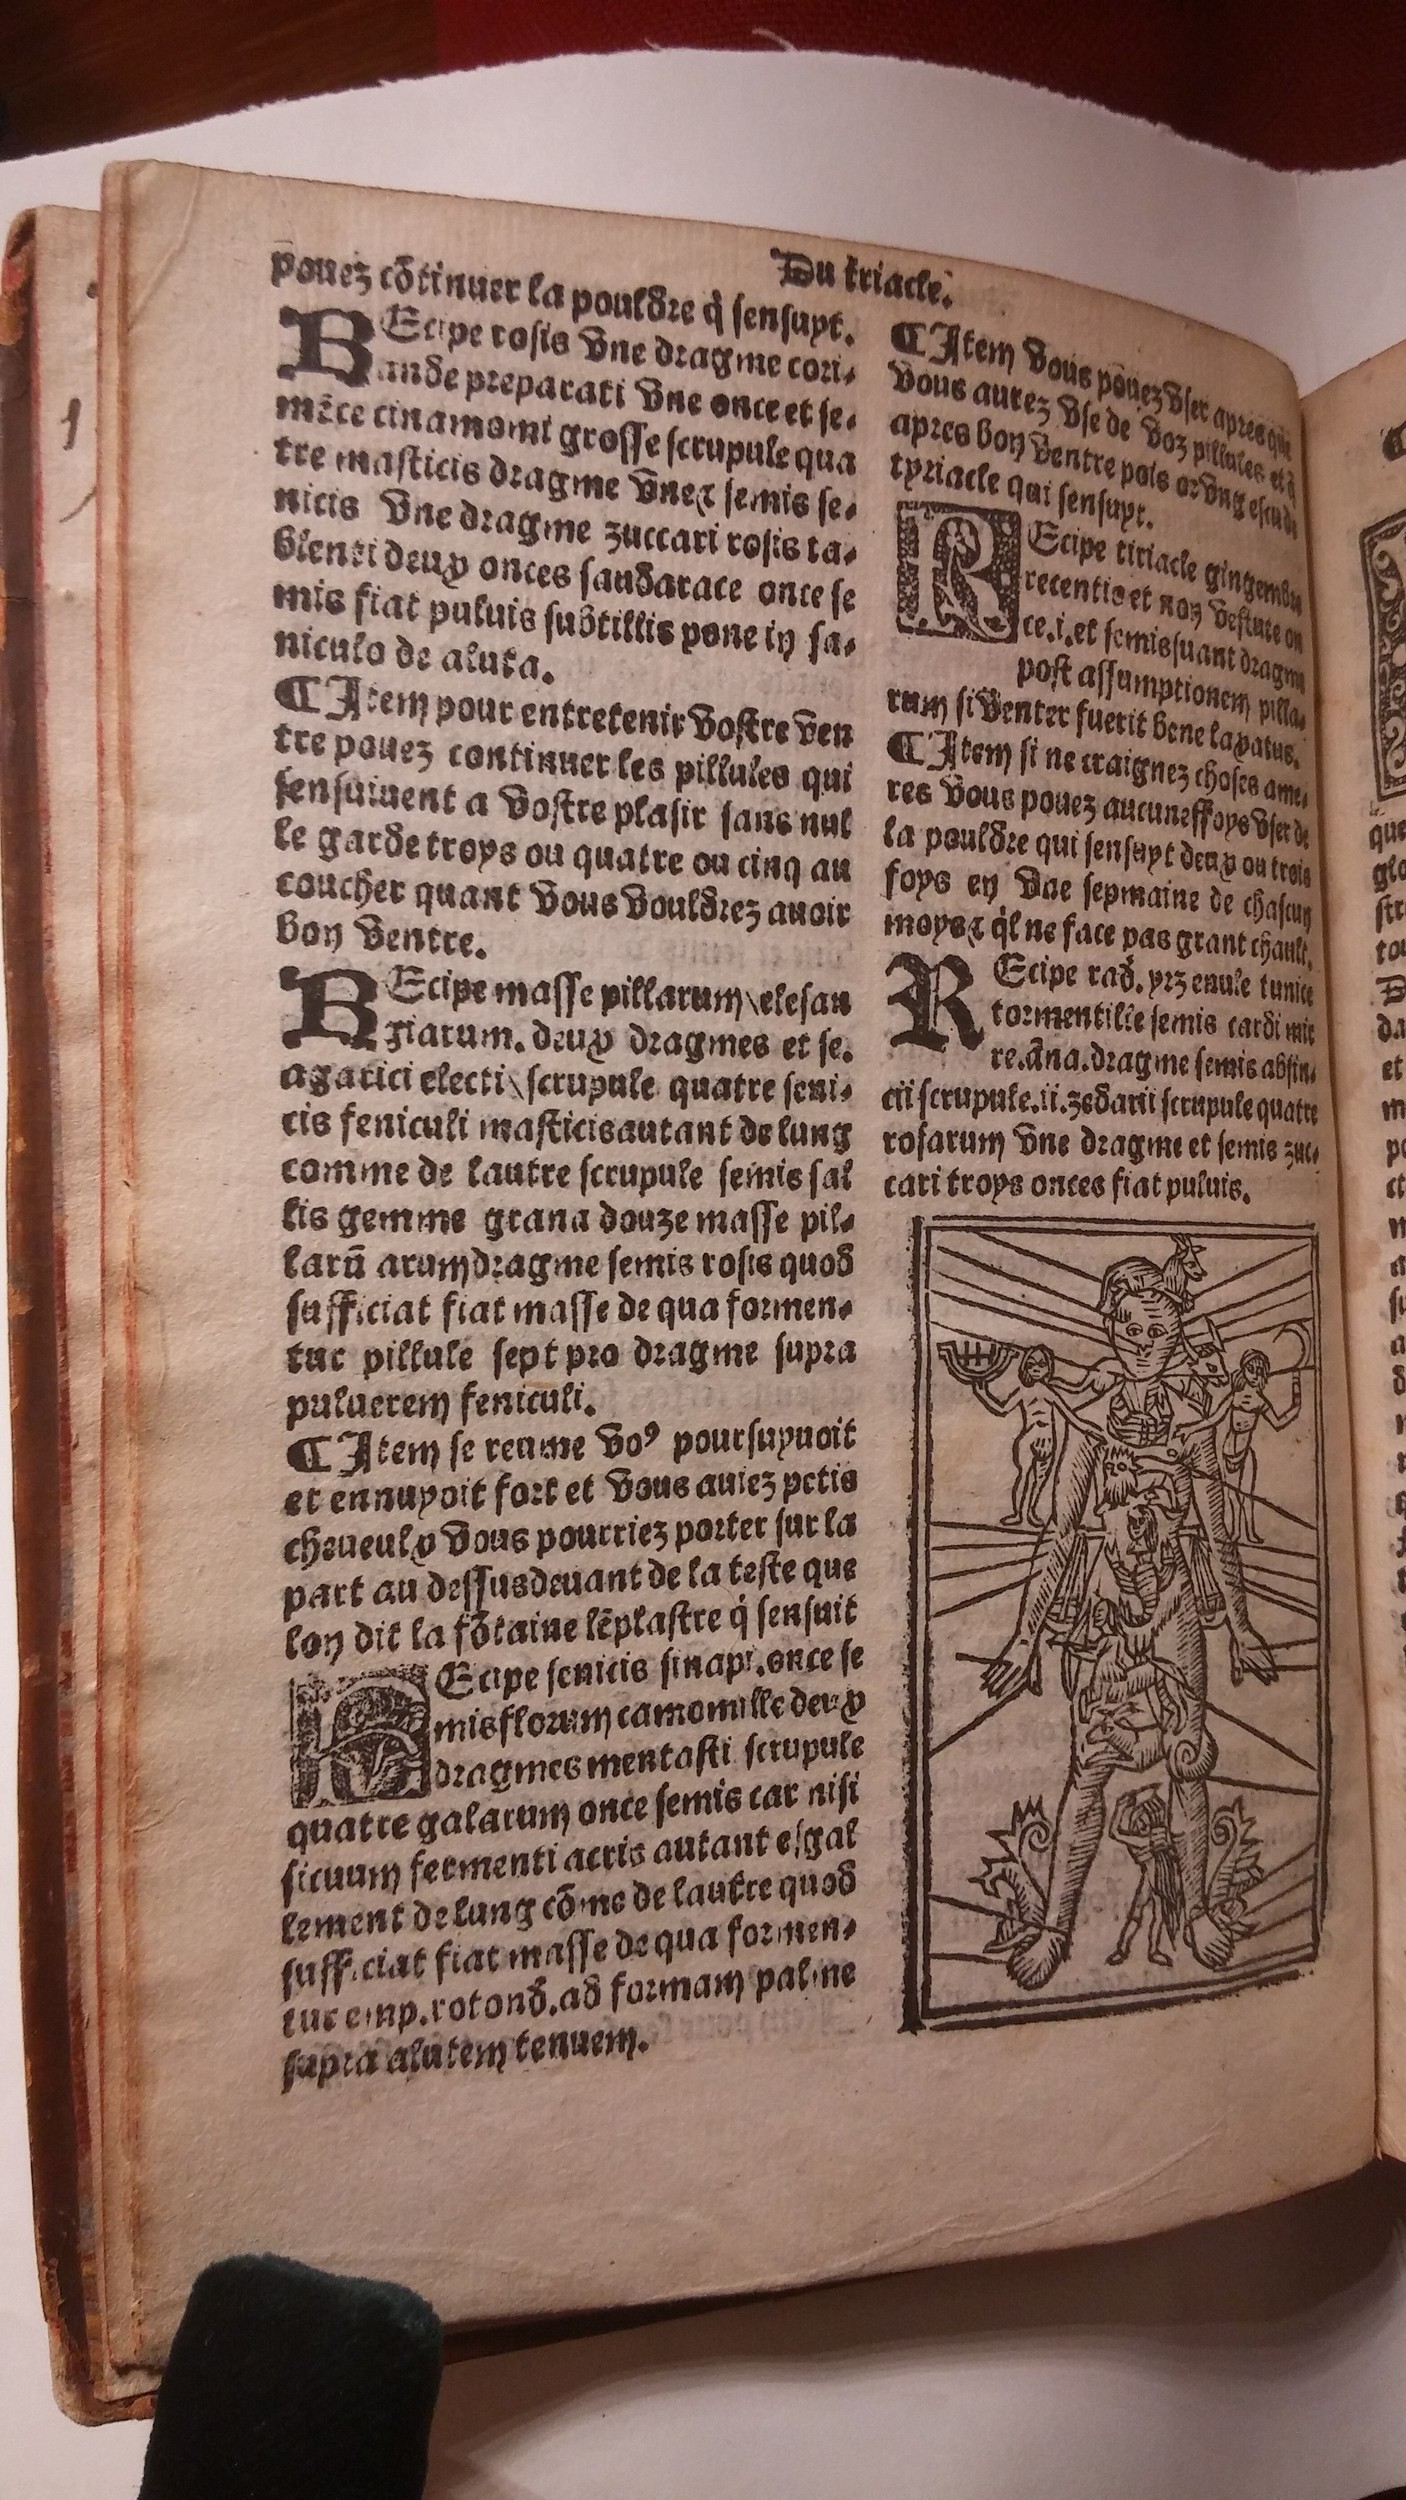 Du triacle.
pouez cõtinuer la pouldre q̇ sensuyt.
REcipe rosis vne dragme cori⸗
ande preparati vne once et se⸗
mẽce cinamomi grosse scrupule qua
tre masticis dragme vne⁊ semis se⸗
nicis vne dragme zuccari rosis ta⸗
blenti deux onces saudarace once se
mis fiat puluis subtillis pone in sa⸗
niculo de aluta.
¶Item pour entretenir vostre ven
tre pouez continuer les pillules qui
sensuiuent a vostre plasir sans nul
le garde troys ou quatre ou cinq au
coucher quant vous vouldrez auoir
bon ventre.
REcipe masse pillarum elefan
giarum. deux dragmes et se.
agarici electi scrupule quatre seni⸗
cis feniculi masticis autant de lung
comme de lautre scrupule semis sal
lis gemme grana douze masse pil⸗
larũ arum dragme semis rosis quod
sufficiat fiat masse de qua formen⸗
tur pillule sept pro dragme supra
puluerem feniculi.
¶Item se reume voꝰ poursuyuoit
et ennuyoit fort et vous auiez petis
cheueulx vous pourriez porter sur la
part au dessus deuant de la teste que
lon dit la fõtaine lẽplastre q̇ sensuit
REcipe senicis sinapi. once se
mis florum camomille deux
dragmes mentasti scrupule
quatre galarum once semis car nisi
sicuum fermenti acris autant esgal
lement de lung cõme de lautre quod
sufficiat fiat masse de qua formen⸗
tur emp. rotond. ad formam palme
supra alutem tenuem.
¶Item vous pouez vser apres que
vous aurez vse de voz pillules et
apres bon ventre pois or vng escu de
tyriacle qui sensuyt.
REcipe tiriacle gingembre
recentis et non vestute on
ce.i.et semis suant dragme
post assumptionem pilla⸗
rum si venter fuerit bene laxatus.
¶Item si ne craignez choses ame⸗
res vous pouez aucuneffoys vser de
la pouldre qui sensuyt deux ou trois
foys en vne sepmaine de chascun
moys⁊ q̇l ne face pas grant chault.
REcipe rad. yrz enule tunice
tormentille semis cardi mir
re.ãna.dragme semis absin⸗
cii scrupule.ii.zedarii scrupule quatre
rosarum vne dragme et semis zuc⸗
cari troys onces fiat puluis.